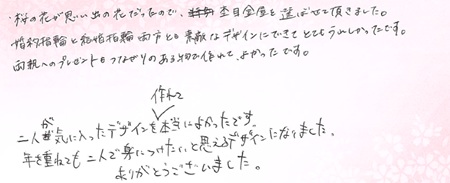 ・桜の花が思い出の花だったので、杢目金屋を選ばせて頂きました。
婚約指輪と結婚指輪両方とも素敵なデザインにできてとてもうれしかったです。
両親へのプレゼントもつながりのある物で作れて、よかったです。
作れて
二人が気に入ったデザインを本当によかったです。
年を重ねても二人で身につけたいと思えるデザインになりました。
ありがとうございました。